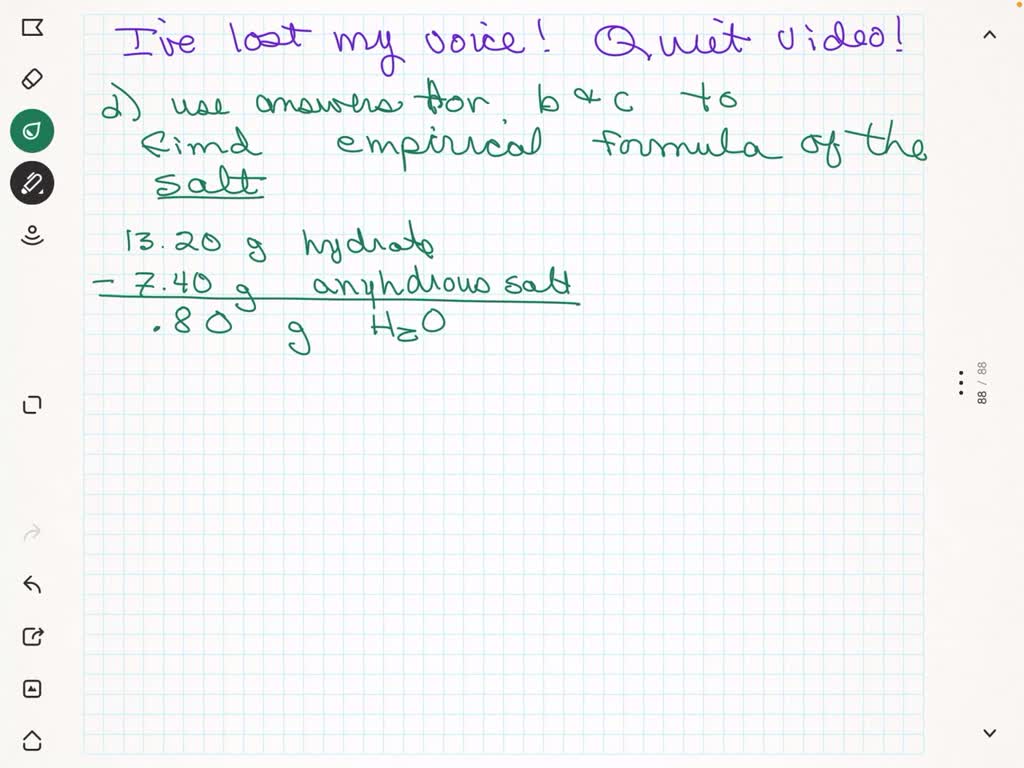 I've lost my voice! Quiet video!
d) use answers for b & c to
find empirical formula of the
salt
13.20 g hydrate
- 7.40 g anyhdrous salt
.80 g H₂O
88 / 88